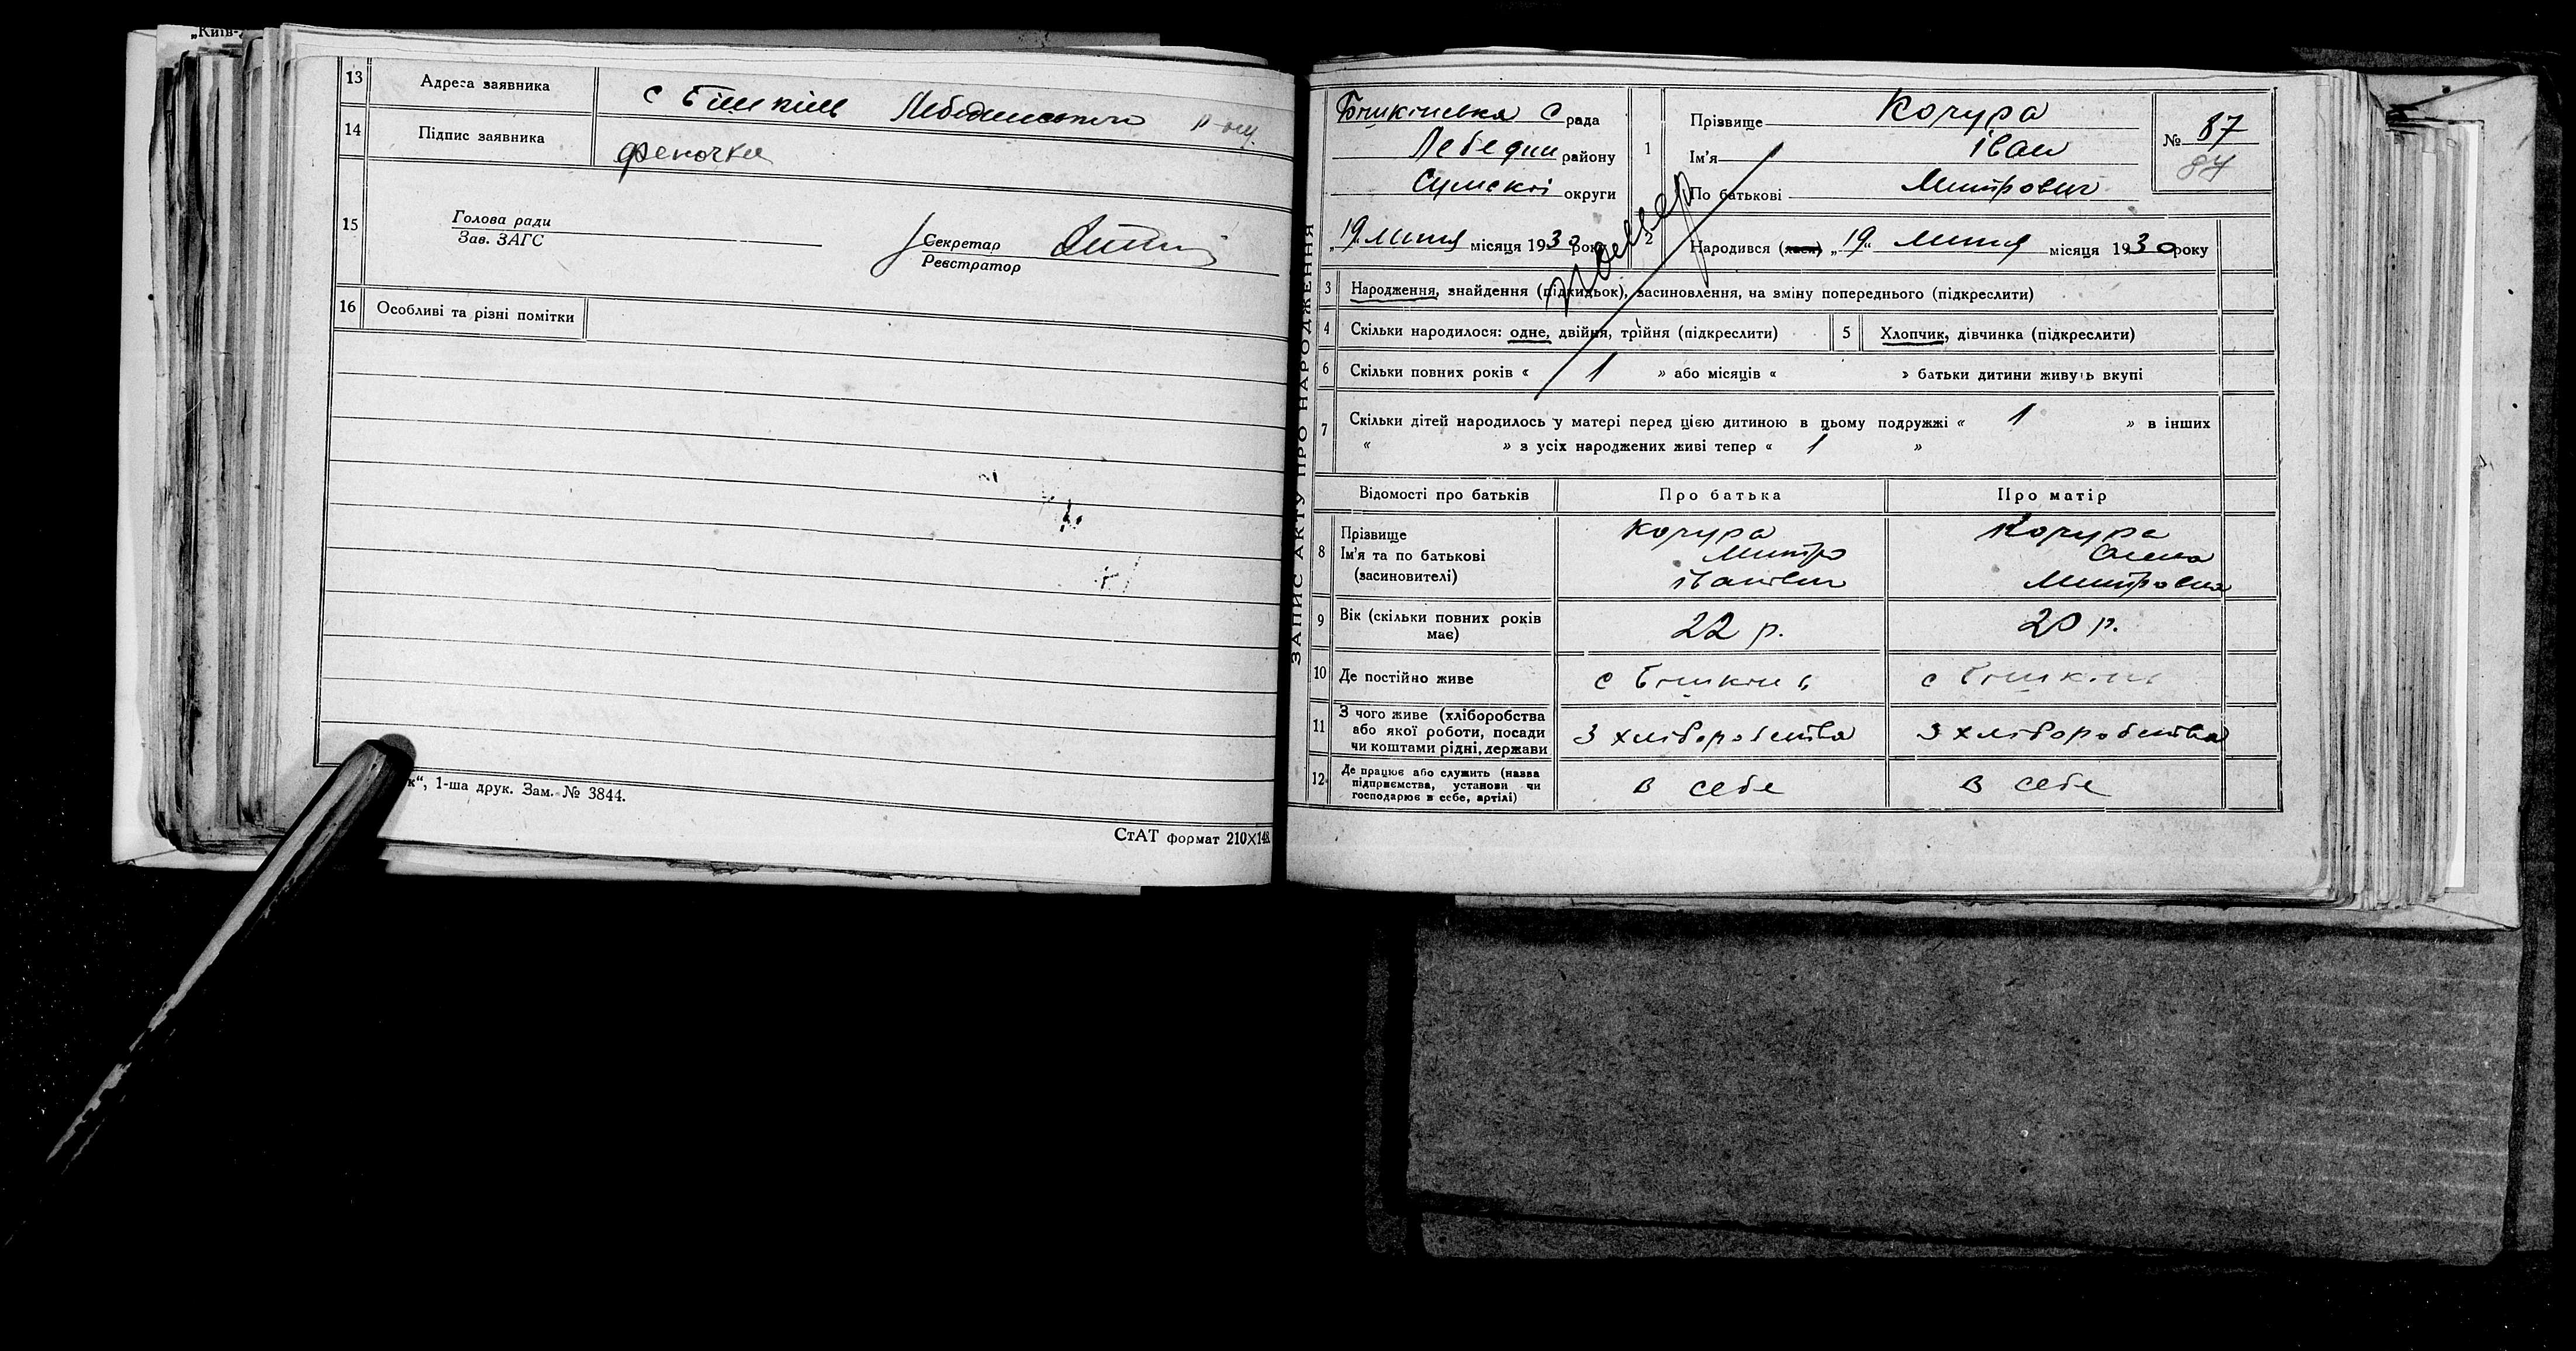 „Київ-
13 Адреса заявника с Бішкінь Лебединського р-ну.
14 Підпис заявника
15 Голова ради
Зав. ЗАГС
Секретар
Реєстратор
16 Особливі та різні помітки
к“, 1-ша друк. Зам. № 3844.
СтАТ формат 210×148
ЗАПИС АКТУ ПРО НАРОДЖЕННЯ
Бішкінська С рада
Лебедин району
Сумскої округи
„19 липня місяця 1930 року
1 Прізвище Кочура
Ім'я Іван
По батькові Митрович
№ 87
87
помер
2 Народився (лася) „19“ липня місяця 1930 року
3 Народження, знайдення (підкидьок), засиновлення, на зміну попереднього (підкреслити)
4 Скільки народилося: одне, двійня, трійня (підкреслити) 5 Хлопчик, дівчинка (підкреслити)
6 Скільки повних років « 1 » або місяців « » батьки дитини живуть вкупі
7 Скільки дітей народилось у матері перед цією дитиною в цьому подружжі « 1 » в інших
« » з усіх народжених живі тепер « 1 »
Відомості про батьків Про батька Про матір
8 Прізвище
Ім'я та по батькові
(засиновителі)
Кочура
Митро
Іванович
Кочура
Митровна
9 Вік (скільки повних років має) 22 р. 20 р.
10 Де постійно живе с Бішкінь с Бішкінь
11 З чого живе (хліборобства
або якої роботи, посади
чи коштами рідні, держави
З хліборобства З хліборобства
12 Де працює або служить (назва
підприємства, установи чи
господарює в себе, артілі)
в себе в себе